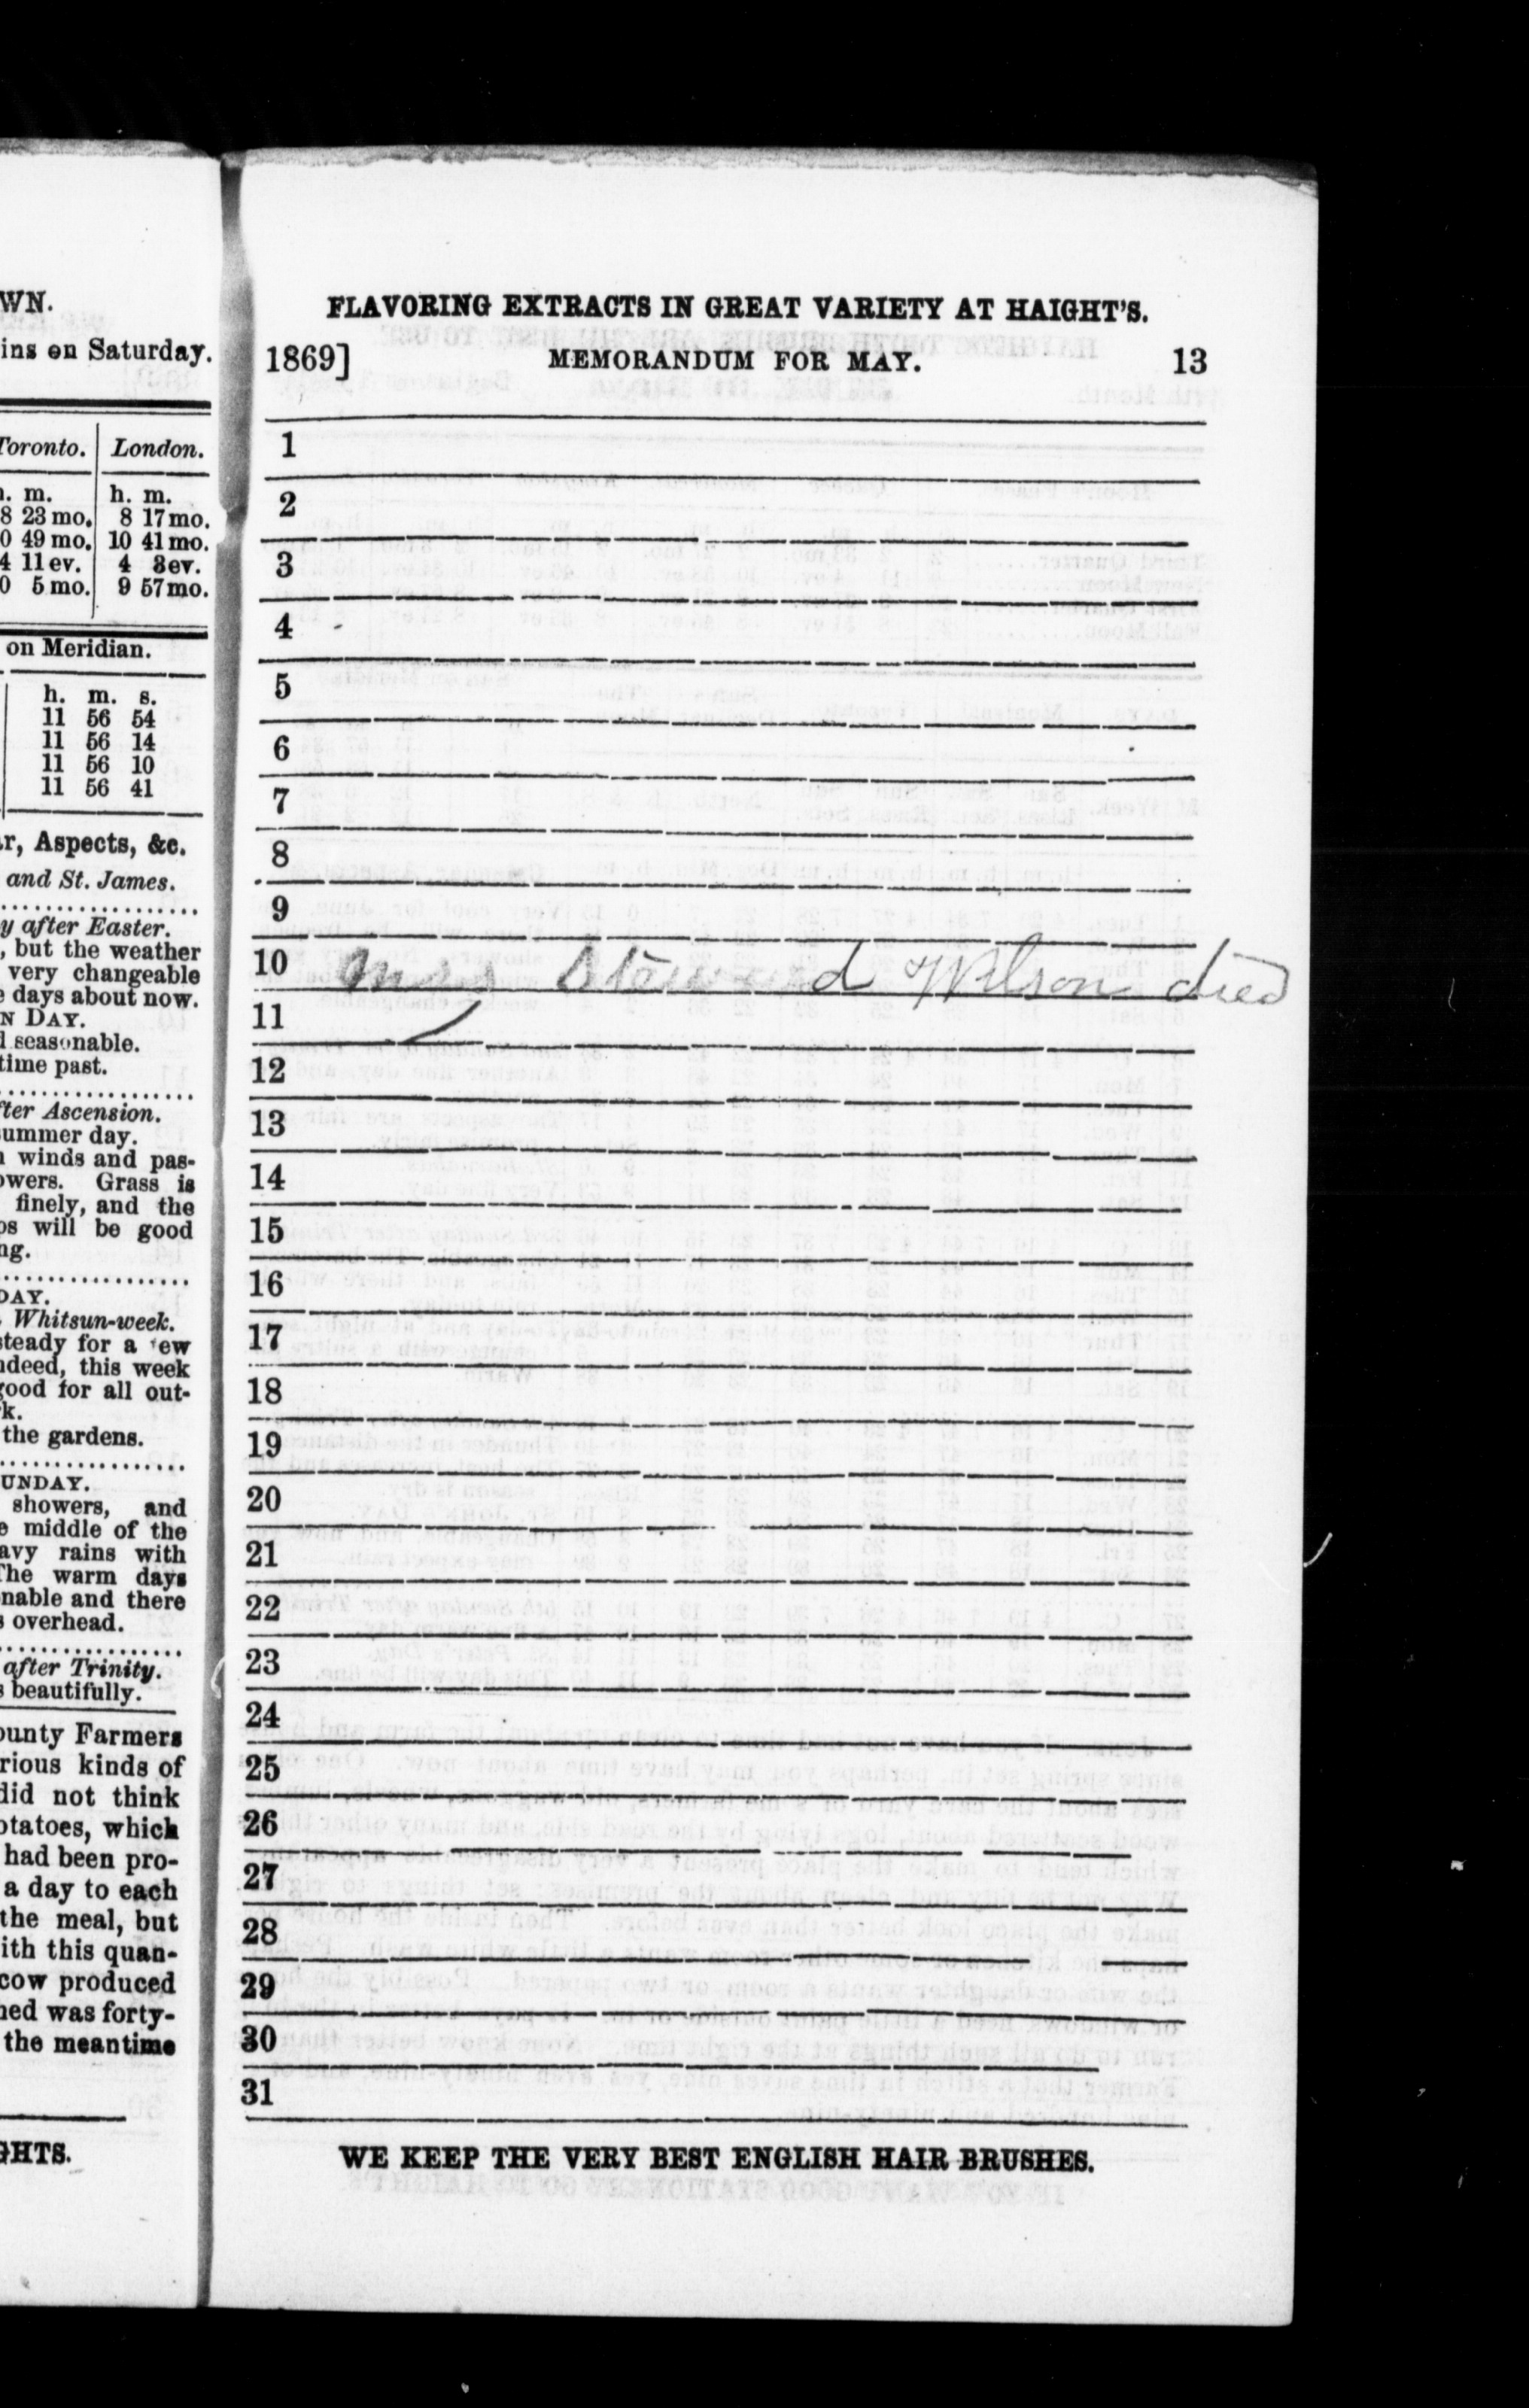 WN.
ins on Saturday.
Toronto. London.
h. m. h. m.
8 23 mo. 8 17 mo.
0 49 mo. 10 41 mo.
4 11 ev. 4 8 ev.
0 5 mo. 9 57 mo.
on Meridian.
h. m. s.
11 56 54
11 56 14
11 56 10
11 56 41
r, Aspects, &c.
and St. James.
y after Easter.
, but the weather
very changeable
e days about now.
N DAY.
d seasonable.
time past.
fter Ascension.
summer day.
n winds and pas-
owers. Grass is
finely, and the
ps will be good
ng.
DAY.
Whitsun-week.
steady for a few
ndeed, this week
good for all out-
k.
the gardens.
UNDAY.
showers, and
e middle of the
avy rains with
The warm days
nable and there
s overhead.
after Trinity.
s beautifully.
ounty Farmers
rious kinds of
did not think
otatoes, which
had been pro-
a day to each
the meal, but
ith this quan-
cow produced
ned was forty-
the meantime
GHTS.
FLAVORING EXTRACTS IN GREAT VARIETY AT HAIGHT'S.
1869] MEMORANDUM FOR MAY. 13
1
2
3
4
5
6
7
8
9
10 Wilson died
11
12
13
14
15
16
17
18
19
20
21
22
23
24
25
26
27
28
29
30
31
WE KEEP THE VERY BEST ENGLISH HAIR BRUSHES.